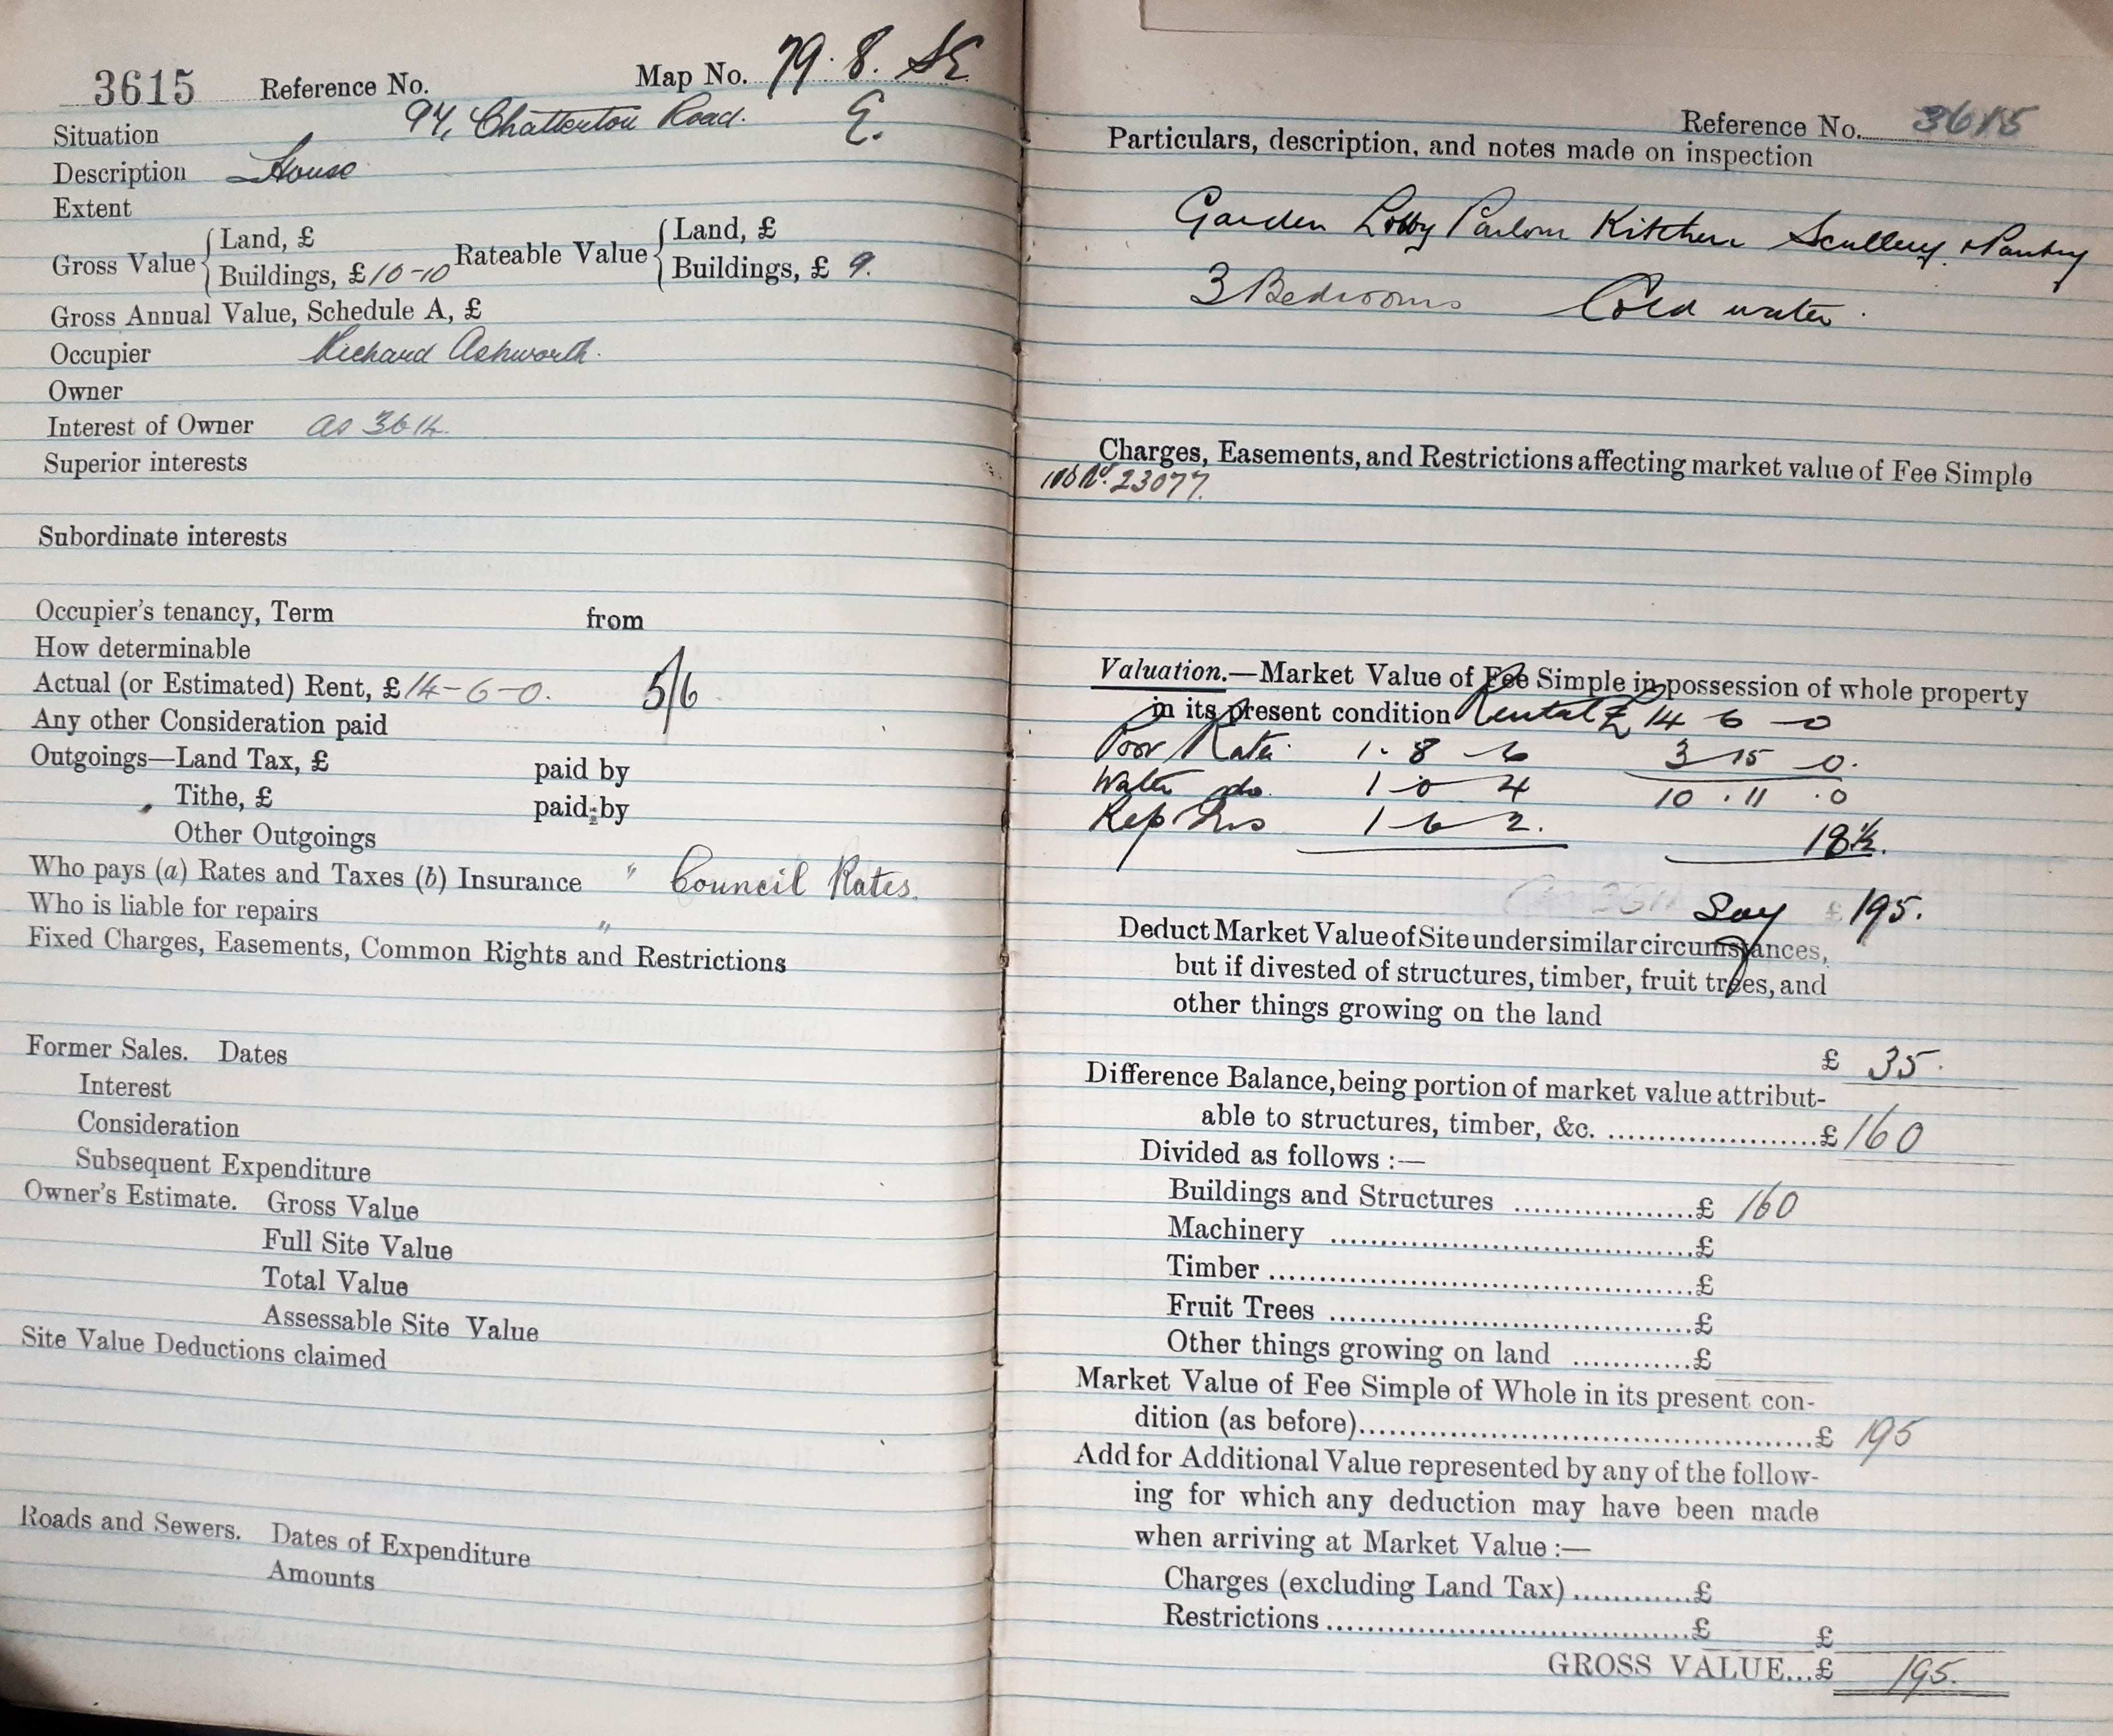 3615 Reference No. Map No. 79. 8. SE
Situation 94, Chatterton Road. E.
Description House
Extent
Gross Value { Land, £ Rateable Value { Land, £
Buildings, £ 10-10 Buildings, £ 9.
Gross Annual Value, Schedule A, £
Occupier Richard Ashworth.
Owner
Interest of Owner as 3614.
Superior interests
Subordinate interests
Occupier's tenancy, Term from
How determinable
Actual (or Estimated) Rent, £ 14-6-0. 5/6
Any other Consideration paid
Outgoings—Land Tax, £ paid by
Tithe, £ paid by
Other Outgoings
Who pays (a) Rates and Taxes (b) Insurance " Council Rates.
Who is liable for repairs "
Fixed Charges, Easements, Common Rights and Restrictions
Former Sales. Dates
Interest
Consideration
Subsequent Expenditure
Owner's Estimate. Gross Value
Full Site Value
Total Value
Assessable Site Value
Site Value Deductions claimed
Roads and Sewers. Dates of Expenditure
Amounts
Reference No. 3615
Particulars, description, and notes made on inspection
Garden Lobby Parlour Kitchen Scullery & Pantry
3 Bedrooms Cold water.
Charges, Easements, and Restrictions affecting market value of Fee Simple
23077.
Valuation.—Market Value of Fee Simple in possession of whole property
in its present condition Rental £ 14 6 - 0
Poor Rate. 1. 8 - 6 3 15 0.
Water do. 1 - 0 4 10 . 11 . 0
Rep & Ins 1 - 6 2. 18½.
Say £ 195.
Deduct Market Value of Site under similar circumstances,
but if divested of structures, timber, fruit trees, and
other things growing on the land
£ 35.
Difference Balance, being portion of market value attribut-
able to structures, timber, &c. ......................£ 160
Divided as follows :—
Buildings and Structures ...................£ 160
Machinery ......................................£
Timber ............................................£
Fruit Trees ......................................£
Other things growing on land ............£
Market Value of Fee Simple of Whole in its present con-
dition (as before)................................................£ 195
Add for Additional Value represented by any of the follow-
ing for which any deduction may have been made
when arriving at Market Value :—
Charges (excluding Land Tax) ............£
Restrictions ......................................£ £
GROSS VALUE...£ 195.